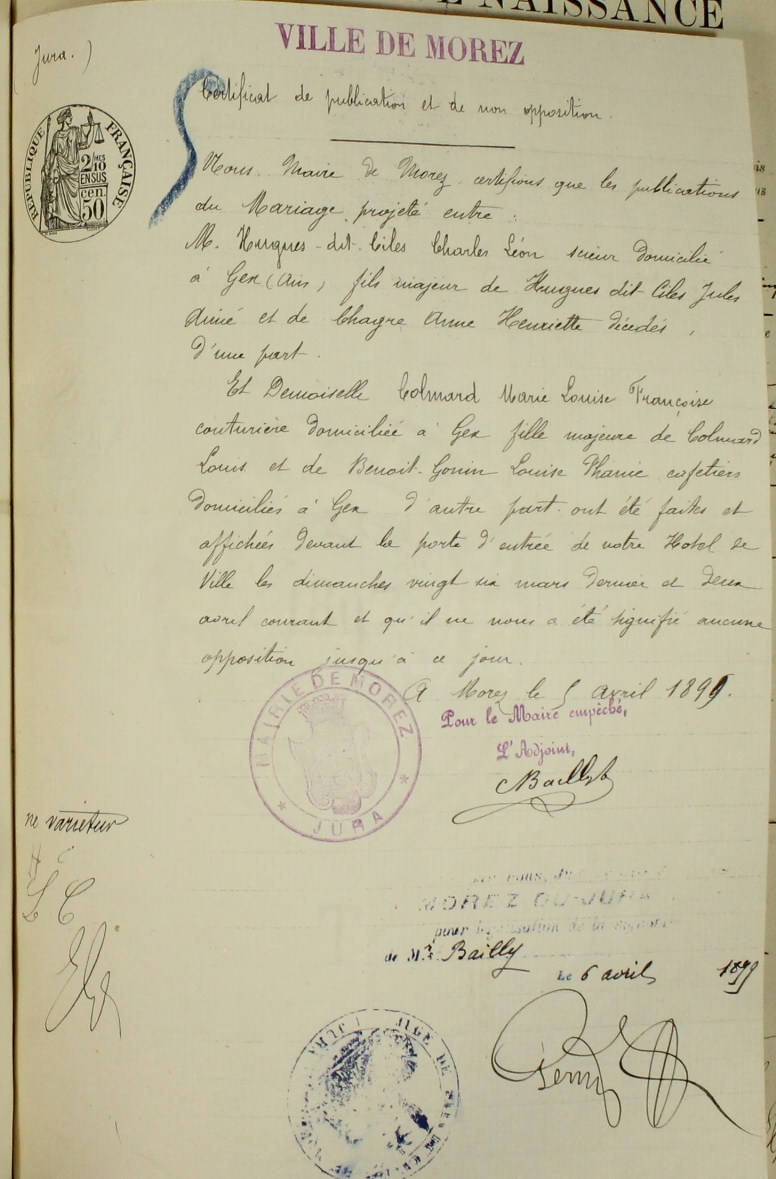 NAISSANCE
Jura.)
VILLE DE MOREZ
Certificat de publication et de non opposition.
RÉPUBLIQUE FRANÇAISE
2/10 EN SUS
50 cen.
Nous, Maire de Morez certifions que les publications
du Mariage projeté entre :
M. Hugues-dit-Ciles Charles Léon scieur domicilié
à Gex (Ain) fils majeur de Hugues dit Ciles Jules
Aimé et de Chagre Anne Henriette décédés,
d'une part.
Et Demoiselle Colmard Marie Louise Françoise
couturière domiciliée à Gex fille majeure de Colmard
Louis et de Benoit-Gonin Louise Phanie cafetiers
domiciliés à Gex d'autre part ont été faites et
affichées devant la porte d'entrée de notre Hotel de
Ville les dimanches vingt six mars dernier et deux
avril courant et qu'il ne nous a été signifié aucune
opposition jusqu'à ce jour.
A Morez le 5 avril 1899.
Pour le Maire empêché,
L'Adjoint,
MAIRIE DE MOREZ
JURA
ne varietur
L C
MOREZ DU JURA
pour légalisation de la signature
de Mr Bailly
Le 6 avril 1899
JUGE DE PAIX